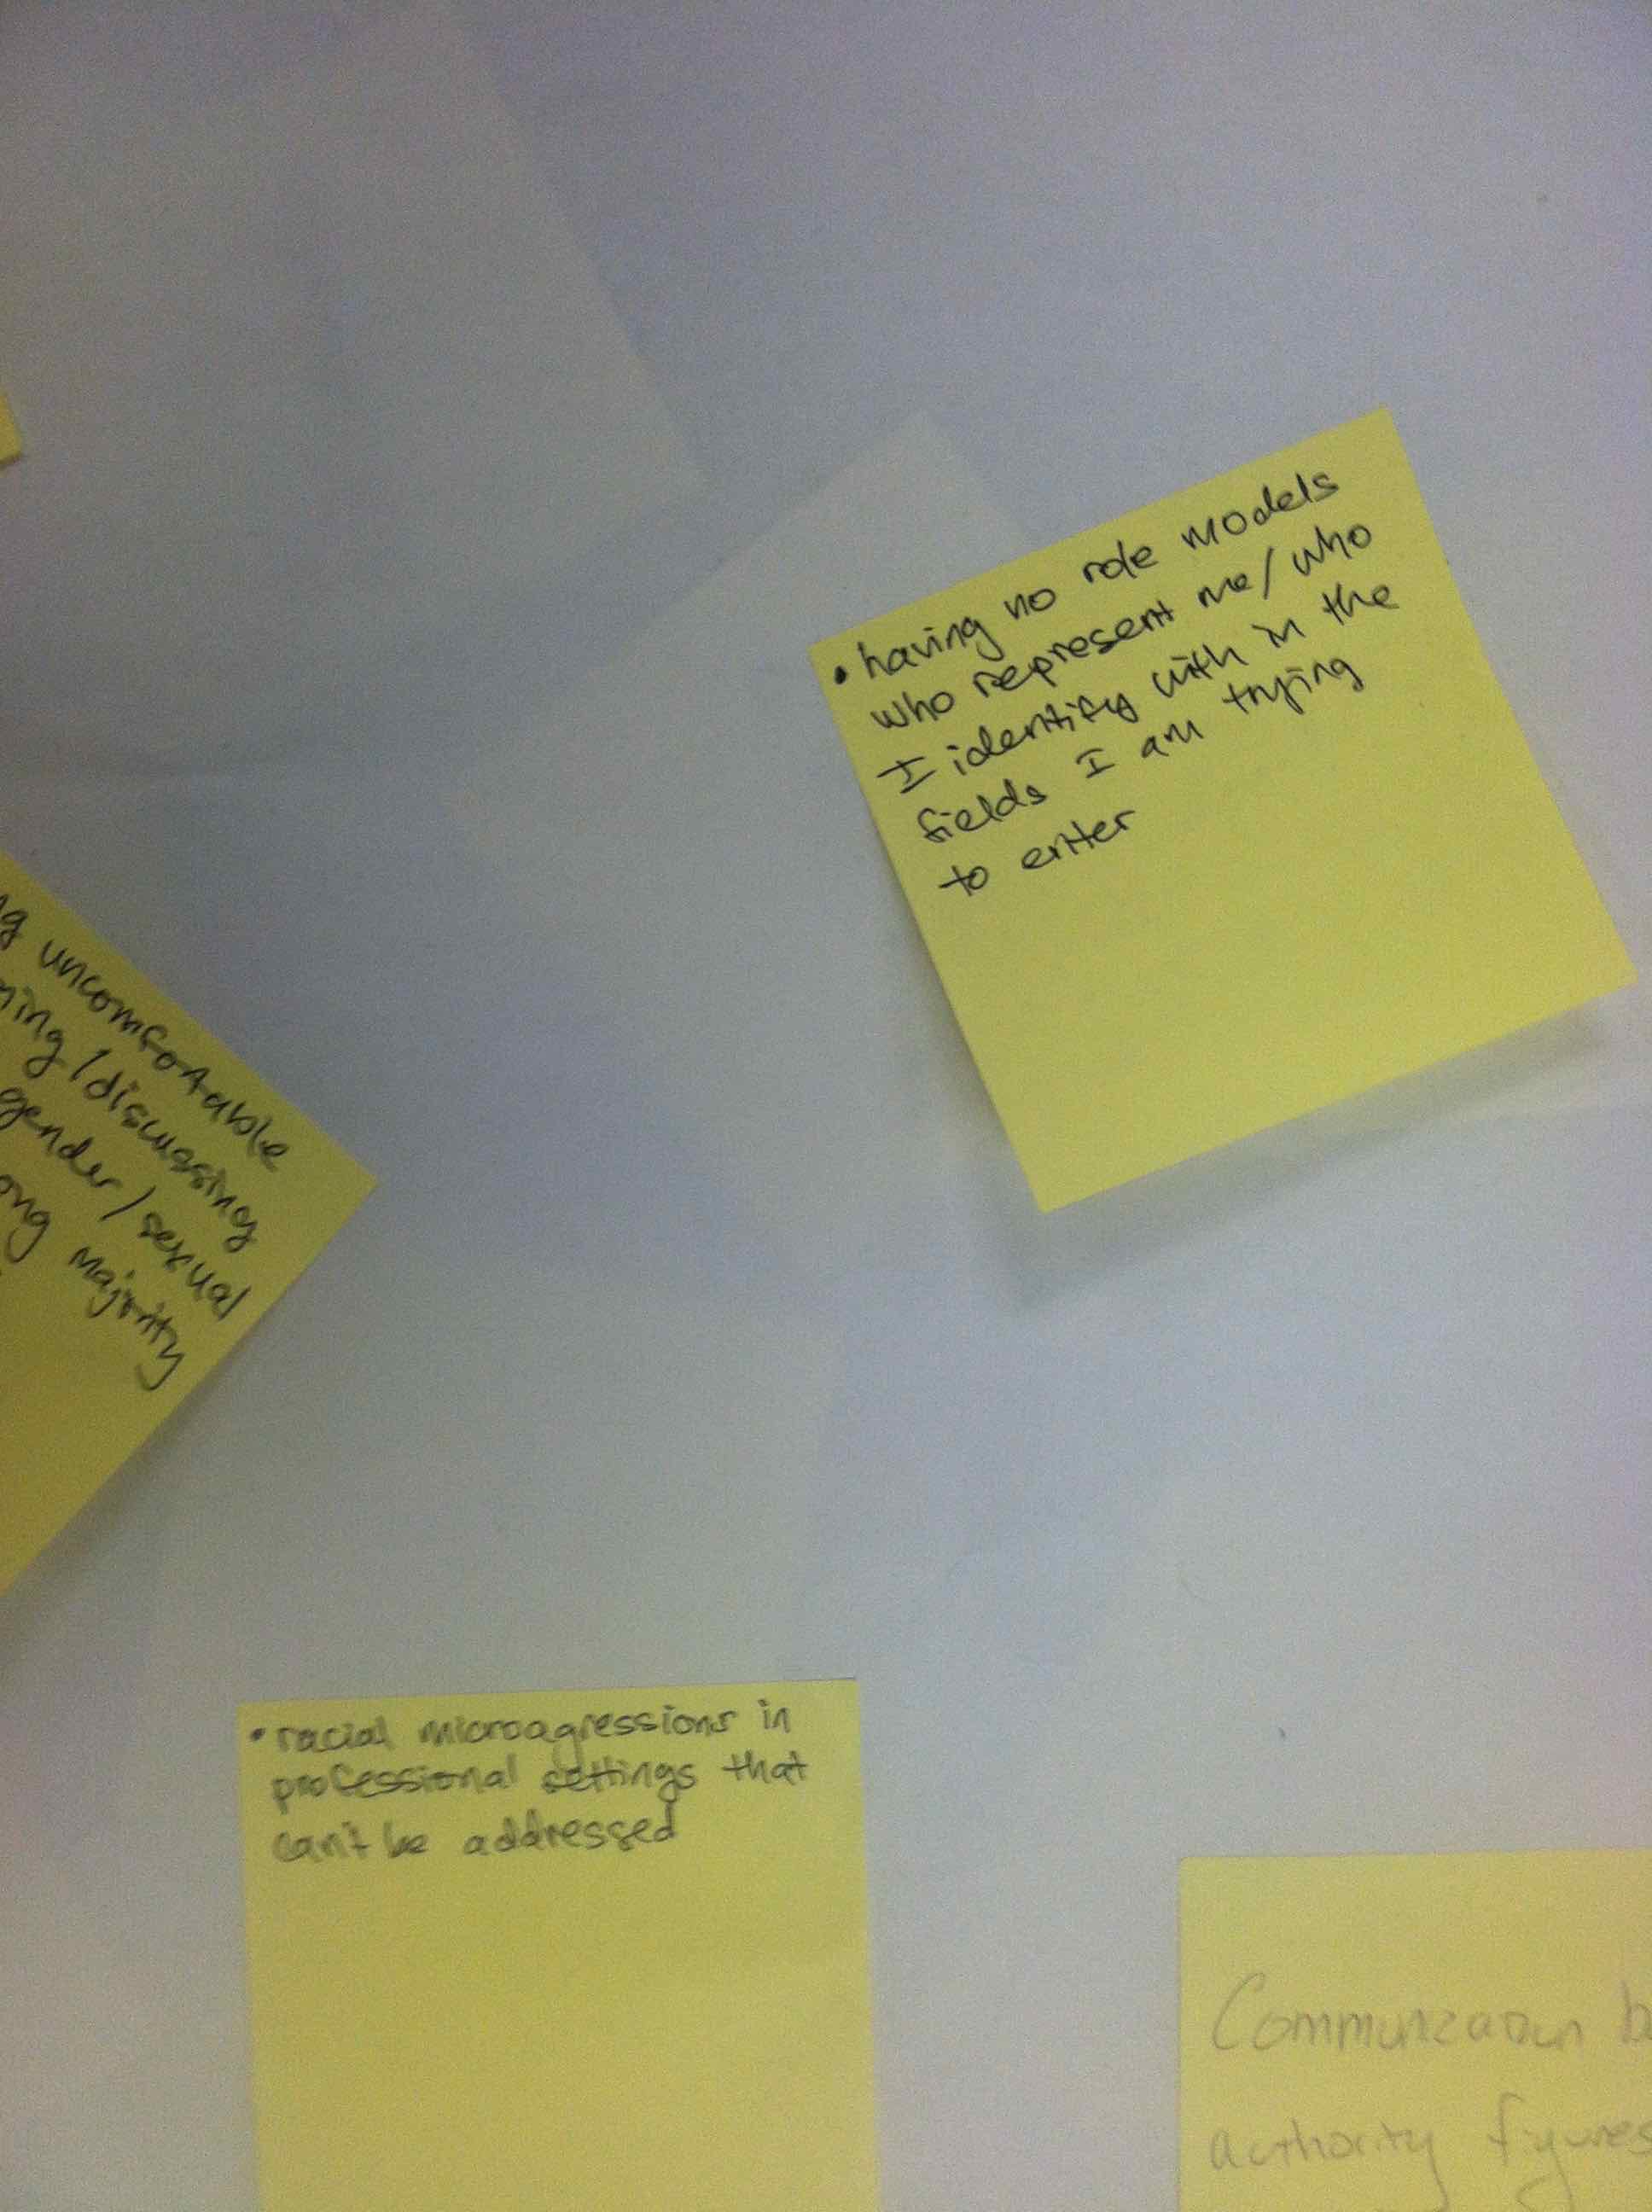 • having no role models
who represent me/who
I identify with in the
fields I am trying
to enter
uncomfortable
/discussing
gender/sexual
majority
• racial microagressions in
professional settings that
can't be addressed
Communication
authority figures